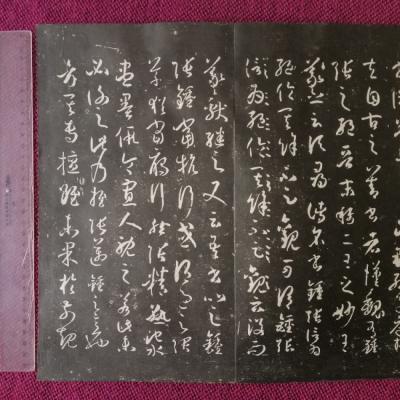 夫自古之善書者漢魏有鍾
張之絕晉末稱二王之妙王
羲之云頃尋諸名書鍾張信為
絕倫其餘不足觀可謂鍾張
信為絕倫其餘不足觀云沒而
羲獻繼之又云吾書比之鍾
張鍾當抗行或謂過之張
草猶當鴈行然張精熟池水
盡墨假令寡人耽之若此未
必謝之此乃推張邁鍾之意也
考其專擅雖未果於前規